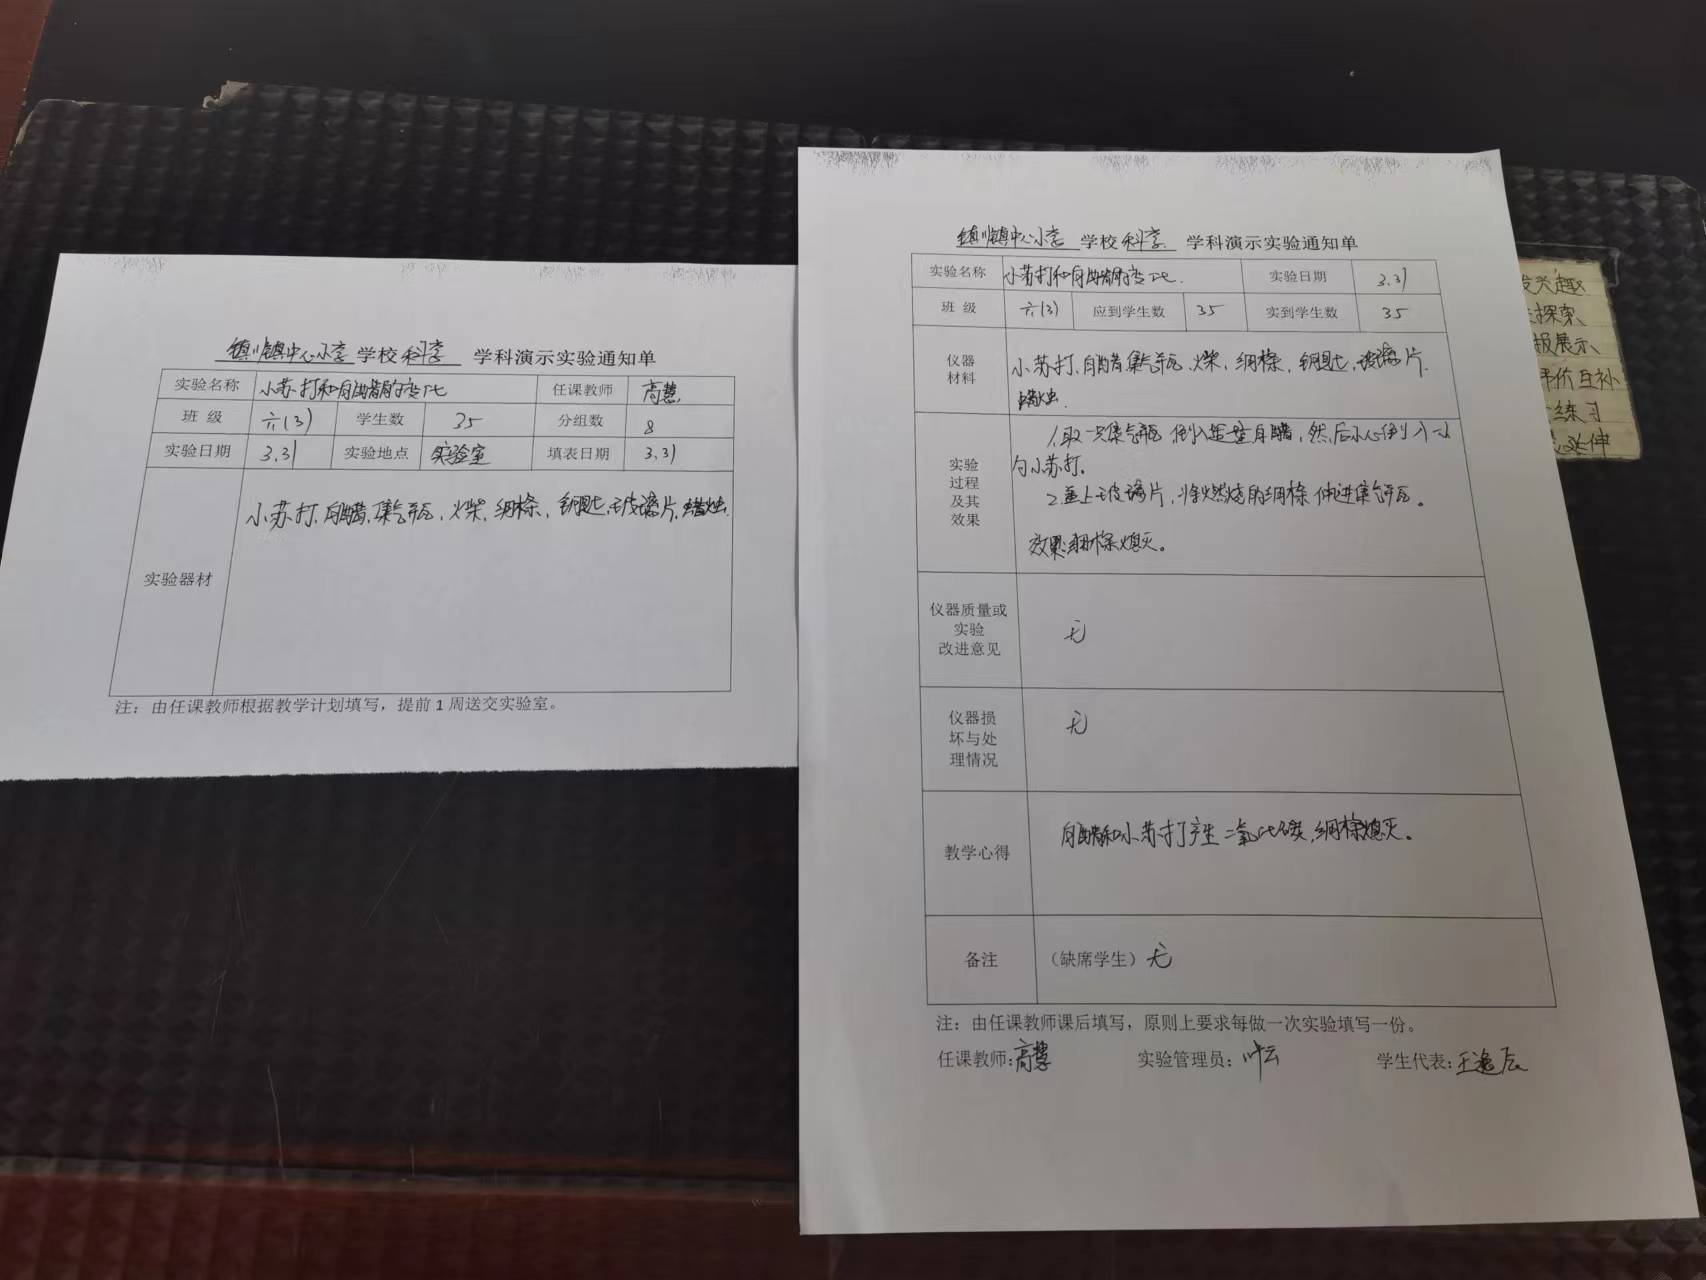 镇川镇中心小学 学校 科学 学科演示实验通知单
实验名称 小苏打和白醋的变化 任课教师 高慧
班 级 六(3) 学生数 35 分组数 8
实验日期 3.31 实验地点 实验室 填表日期 3.31
实验器材 小苏打,白醋,集气瓶,火柴,细木条,钥匙,玻璃片,蜡烛.
注：由任课教师根据教学计划填写，提前 1 周送交实验室。
镇川镇中心小学 学校 科学 学科演示实验通知单
实验名称 小苏打和白醋的变化. 实验日期 3.31
班 级 六(3) 应到学生数 35 实到学生数 35
仪器
材料
小苏打,白醋,集气瓶,火柴,细木条,钥匙,玻璃片.
蜡烛.
实验
过程
及其
效果
1.取一只集气瓶 倒入适量白醋,然后小心倒入一小
勺小苏打.
2.盖上玻璃片,将燃烧的细木条伸进集气瓶。
效果:细木条熄灭。
仪器质量或
实验
改进意见
无
仪器损
坏与处
理情况
无
教学心得 白醋和小苏打产生二氧化碳,细木条熄灭。
备注 （缺席学生）无
注：由任课教师课后填写，原则上要求每做一次实验填写一份。
任课教师:高慧 实验管理员:叶云 学生代表:王逸辰
发兴趣
探索
报展示
评价互补
练习
延伸